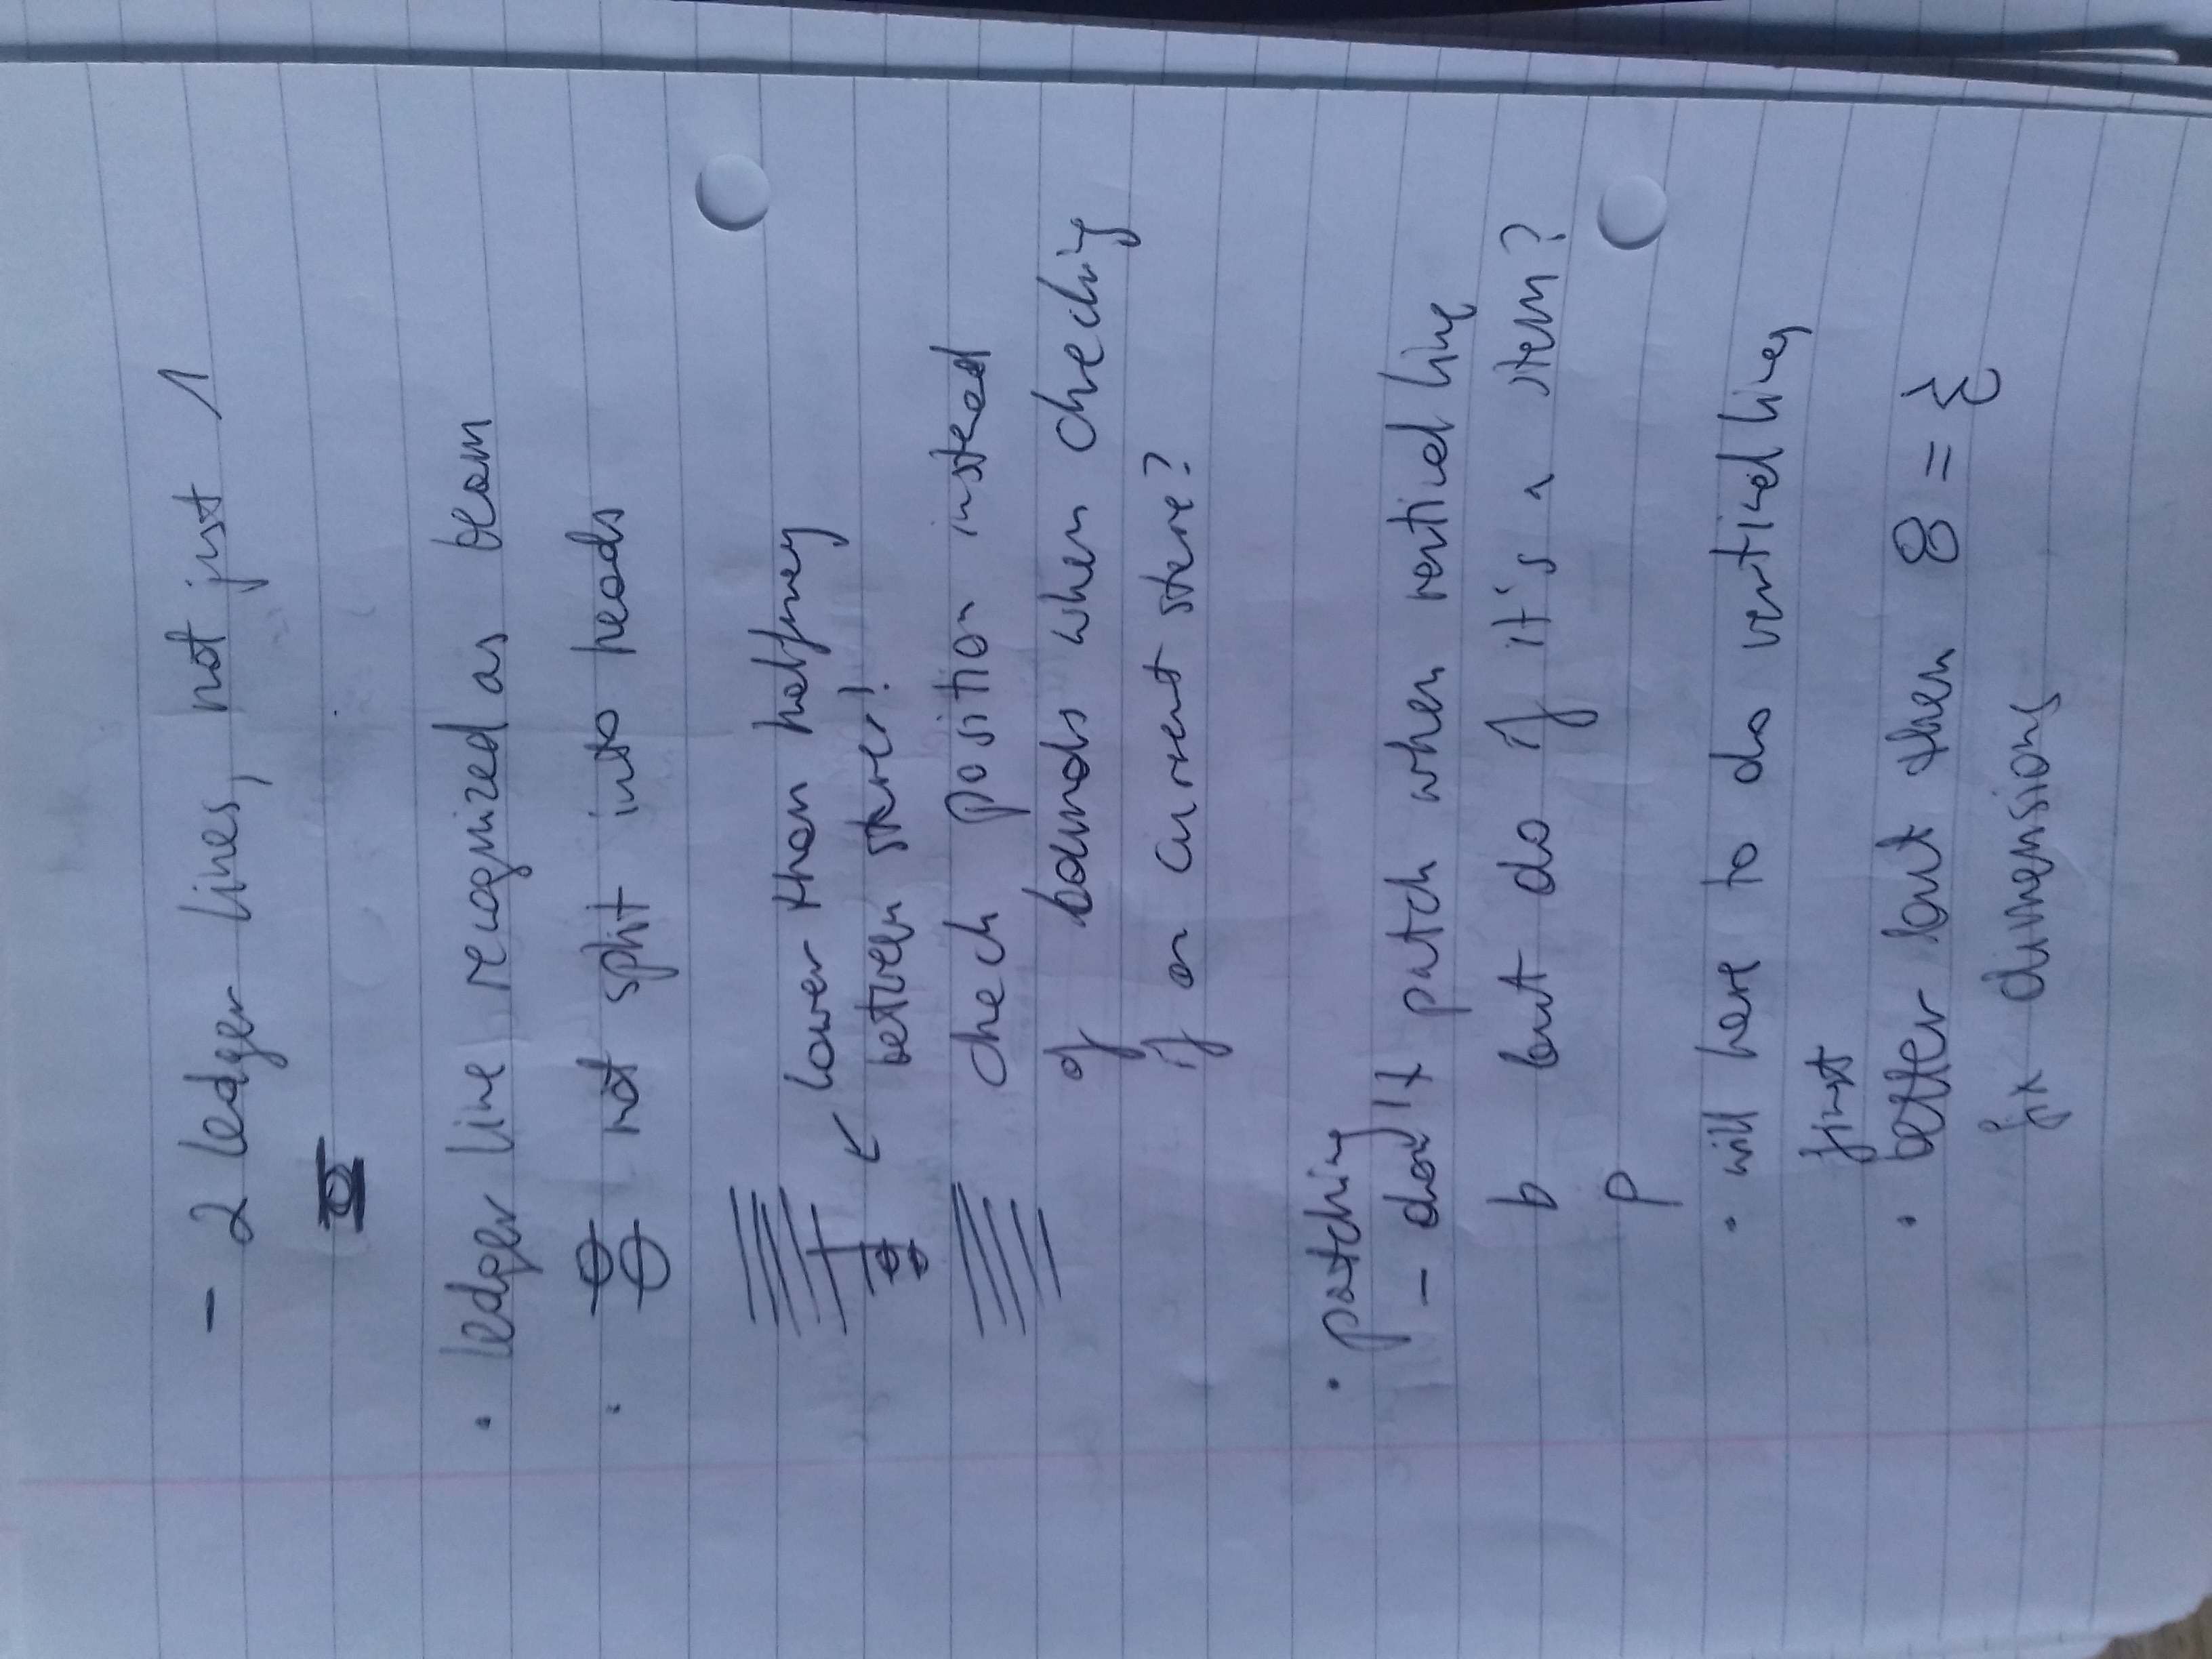 - 2 ledger lines, not just 1
· ledger line recognized as beam
· not split into heads
lower than halfway
between staves!
check position instead
of bounds when checking
if on current stave?
· patching
- don't patch when vertical line
b but do if it's a stem?
p
· will have to do vertical lines
first
· better but then 8 =
fix dimensions